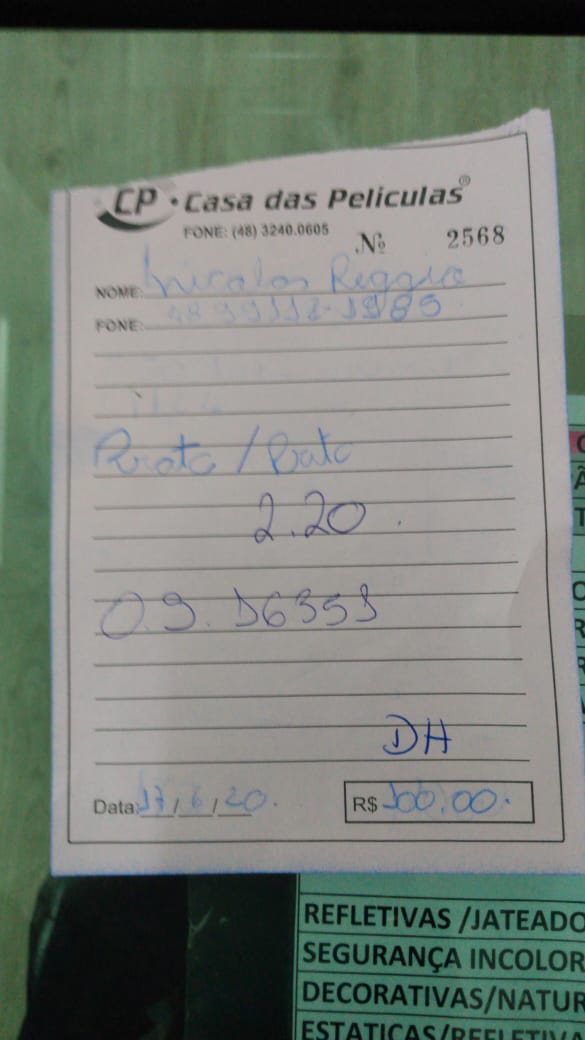 CP · Casa das Películas®
FONE: (48) 3240.0605
Nº 2568
NOME: Nicolas Reggio
FONE: 48 99112-1989
Prata / Bata
2.20.
O.S. 16351
DH
Data: 17/6/20.
R$ 100,00.
REFLETIVAS /JATEADO
SEGURANÇA INCOLOR
DECORATIVAS/NATUR
ESTATICAS/REFLETIVA